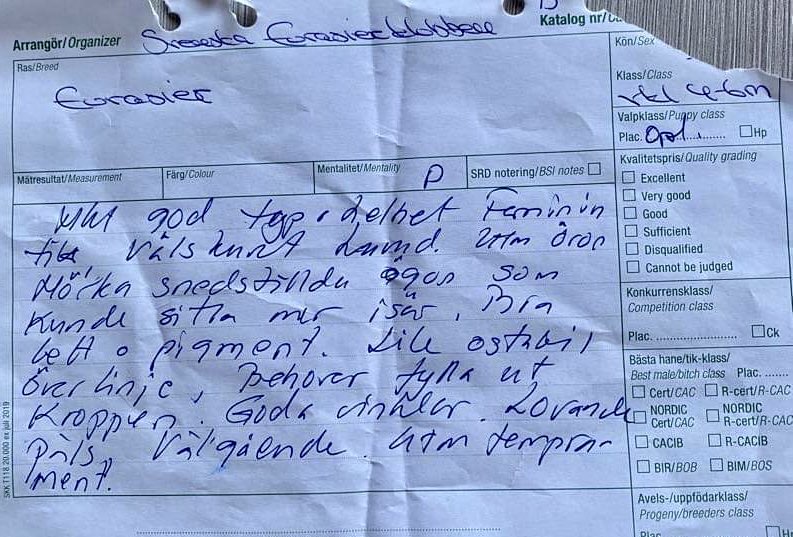 Katalog nr/
Arrangör/Organizer Svenska Eurasierklubben
Kön/Sex
Ras/Breed
Eurasier
Klass/Class
vkl 4-6m
Valpklass/Puppy class
Plac. .......... Hp
Mätresultat/Measurement
Färg/Colour
Mentalitet/Mentality
P
SRD notering/BSI notes
Kvalitetspris/Quality grading
Excellent
Very good
Good
Sufficient
Disqualified
Cannot be judged
Mkt god typ o helhet Feminin
tik Välskuret huvud. Utm öron
Mörka snedställda ögon som
Kunde sitta mer isär. Bra
bett o pigment. Lite ostabil
överlinje. Behöver fylla ut
Kroppen. Goda vinklar. Lovande
päls. Välgående. Utm tempra-
ment.
Konkurrensklass/
Competition class
Plac. .................... Ck
Bästa hane/tik-klass/
Best male/bitch class Plac. .......
Cert/CAC R-cert/R-CAC
NORDIC Cert/CAC NORDIC R-cert/R-CAC
CACIB R-CACIB
BIR/BOB BIM/BOS
Avels-/uppfödarklass/
Progeny/breeders class
Plac.
SKK T118 20.000 ex juli 2019